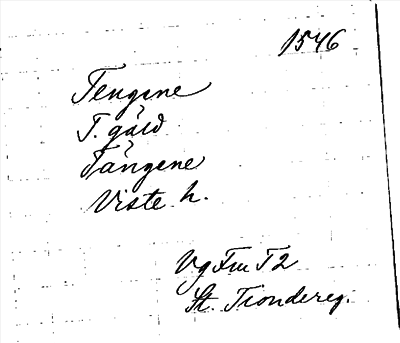 1546
Tengene
T. gärd
Tängene
Viste h.
Vg Fru T 2
St. Tiondereg.